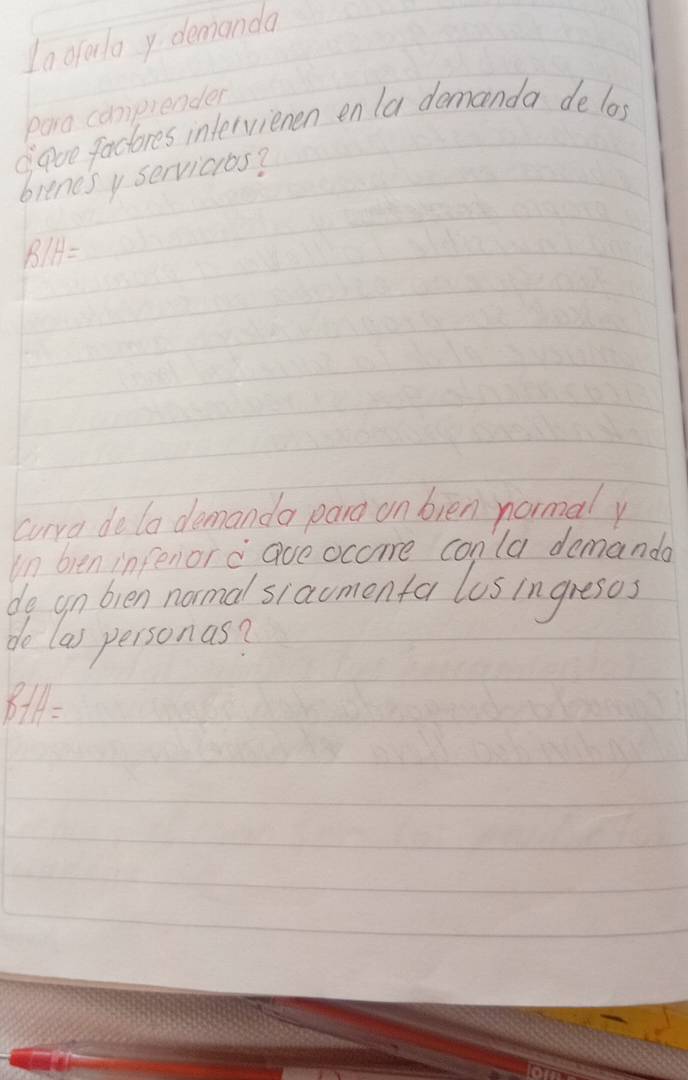 La oferta y demanda
para comprender
¿Que factores intervienen en la demanda de los
bienes y servicios?
R/A=
curva de la demanda para un bien normal y
un bien inferior ¿ que ocurre con la demanda
de un bien normal si aumenta los ingresos
de las personas?
R/A=